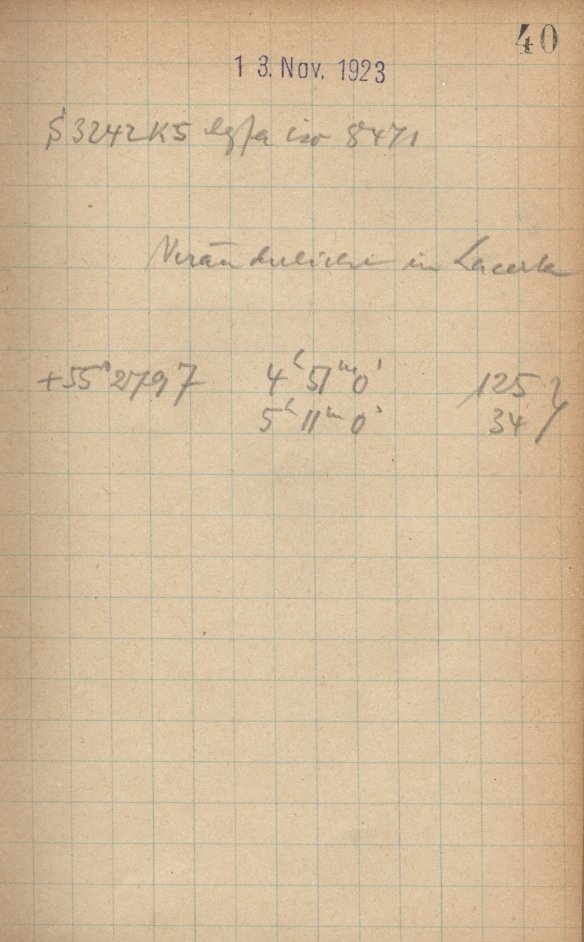 40
13. Nov. 1923
S 3242 K5 Agfa iso 8471
Veränderliche in Lacerta
+55°2797 4ʰ51ᵐ0ˢ 125
5ʰ11ᵐ0ˢ 34